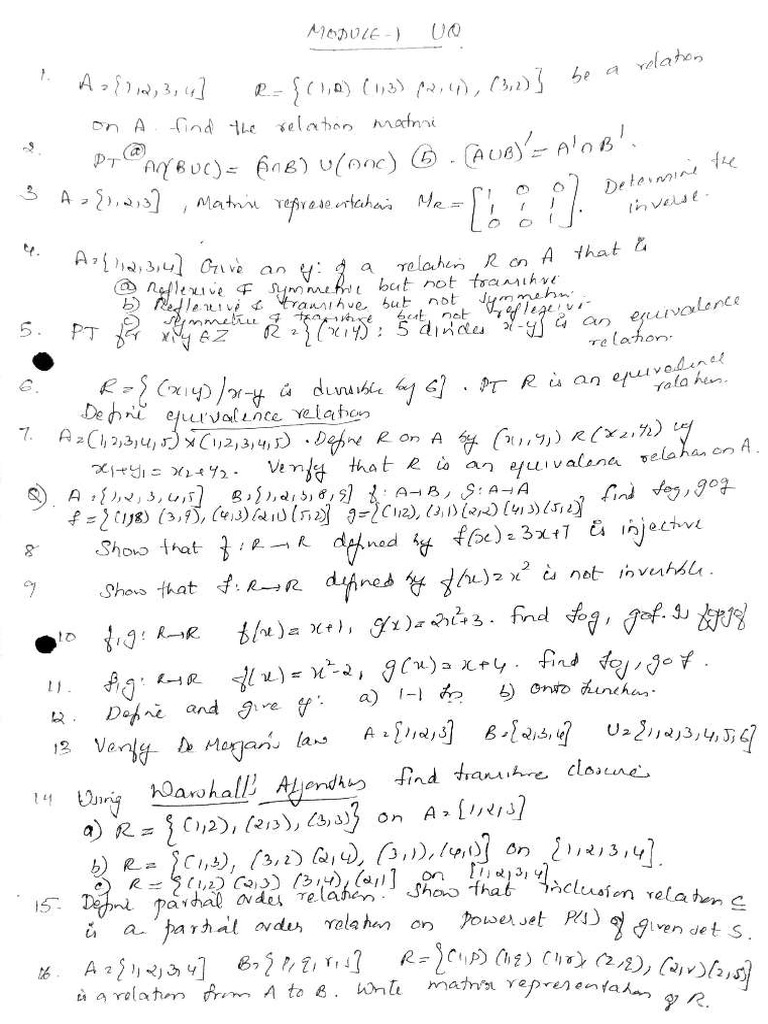 MODULE-1 UQ
1. A = {1,2,3,4} R = {(1,2) (1,3) (2,4), (3,2)} be a relation
on A. find the relation matrix
2. PT (a) A∩(B∪C) = (A∩B) ∪ (A∩C) (b). (A∪B)' = A'∩B'.
3 A = {1,2,3}, Matrix representation M_R = [1 0 0; 1 1 1; 0 0 1]. Determine the inverse.
4. A = {1,2,3,4} Give an eg: of a relation R on A that is
(a) Reflexive & symmetric but not transitive
b) Reflexive & transitive but not symmetric
c) symmetric & transitive but not reflexive
5. PT for x,y ∈ Z R = {(x,y) : 5 divides x-y} is an equivalence relation.
6. R = {(x,y) / x-y is divisible by 6}. PT R is an equivalence relation.
Define equivalence relation
7. A = (1,2,3,4,5) × (1,2,3,4,5). Define R on A by (x₁,y₁) R (x₂,y₂) if
x₁+y₁ = x₂+y₂. Verify that R is an equivalence relation on A.
Q) A = {1,2,3,4,5} B = {1,2,3,8,9} f: A→B, g: A→A find fog, gog
f = {(1,8) (3,9), (4,3) (2,1) (5,2)} g = {(1,2), (3,1) (2,2) (4,3) (5,2)}
8 Show that f: R→R defined by f(x) = 3x+7 is injective
9 Show that f: R→R defined by f(x) = x² is not invertible.
10 f,g: R→R f(x) = x+1, g(x) = 2x²+3. find fog, gof. Is fog=gof
11. f,g: R→R f(x) = x²-2, g(x) = x+4. find fog, gof.
12. Define and give eg: a) 1-1 fn b) onto function.
13 Verify De Morgan's law A = {1,2,3} B = {2,3,4} U = {1,2,3,4,5,6}
14 Using Warshall's Algorithm find transitive closure
a) R = {(1,2), (2,3), (3,3)} on A = {1,2,3}
b) R = {(1,3), (3,2) (2,4), (3,1), (4,1)} on {1,2,3,4}.
c) R = {(1,2) (2,3) (3,4), (2,1} on {1,2,3,4}
15. Define partial order relation. Show that inclusion relation ⊆
is a partial order relation on powerset P(S) of given set S.
16. A = {1,2,3,4} B = {p,q,r,s} R = {(1,p) (1,q) (1,r) (2,q), (2,r) (2,s)}
is a relation from A to B. Write matrix representation of R.